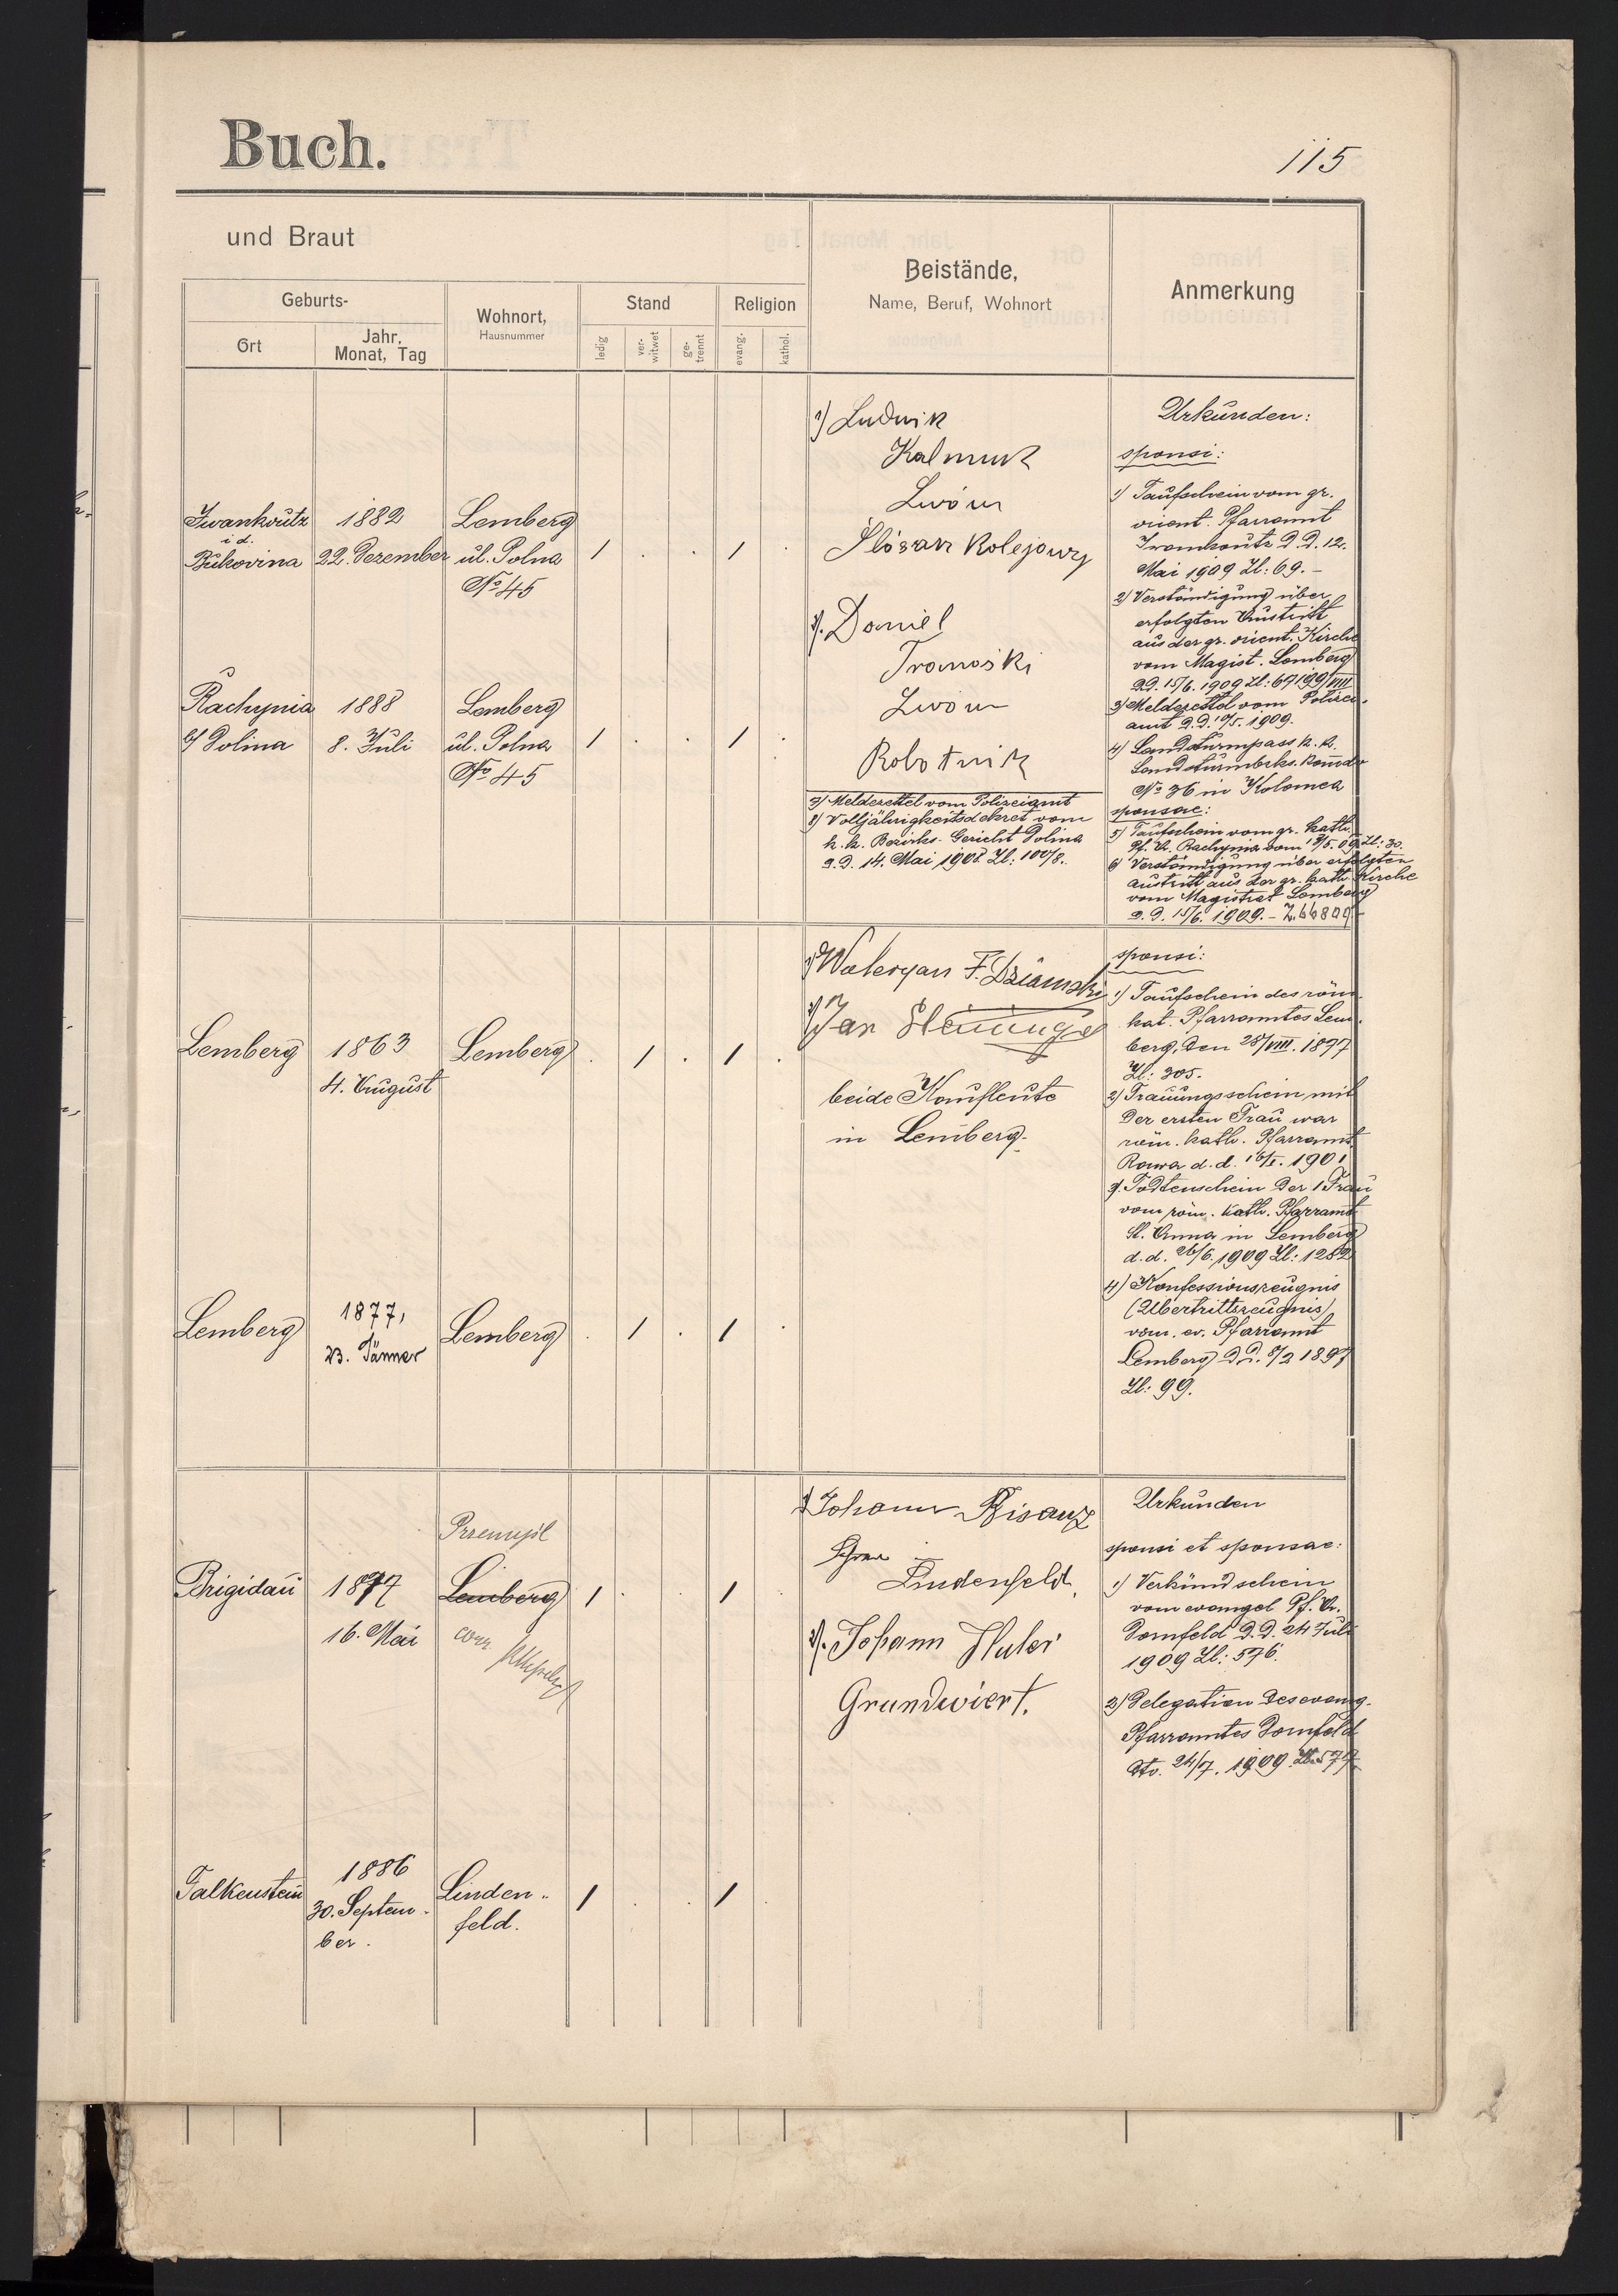 Buch.
115
und Braut
Geburts-
Ort
Jahr,
Monat, Tag
Wohnort,
Hausnummer
Stand
ledig
ver-
witwet
ge-
trennt
Religion
evang.
kathol.
Beistände,
Name, Beruf, Wohnort
Anmerkung
Iwankoutz
i d.
Bukovina
1882
22. Dezember
Lemberg
ul. Polna
No 45
1 . . 1 .
Rachynia
b/ Dolina
1888
8. Juli
Lemberg
ul. Polna
No 45
1 . . 1 .
1) Ludwik
Kalmuk
Lwów
Ślósarz Kolejowy
2). Daniel
Iwanoski
Lwów
Robotnik
3) Meldezettel vom Polizeiamt
8) Volljährigkeitsdekret vom
k. k. Bezirks-Gericht Dolina
d. d. 14. Mai 1908 Zl: 100/8.
Urkunden:
sponsi:
1) Taufschein vom gr.
orient. Pfarramt
Iwankoutz d. d. 12.
Mai 1909 Zl: 69.-
2) Verständigung über
erfolgten Austritt
aus der gr. orient. Kirche
vom Magist. Lemberg
d.d. 15/6. 1909 Zl: 67199/VIII
3) Meldezettel vom Polizei-
amt d.d. 1909.
4) Landsturmpass k. k.
Landsturmbzks. Komdo
No 36 in Kolomea
sponsae:
5) Taufschein vom gr. kath.
Pf. A. Rachynia vom 09 Zl: 30.
6) Verständigung über erfolgten
austritt aus der gr. kath. Kirche
vom Magistrat Lemberg
d. d. 15/6. 1909. - Z. 66809
Lemberg
1863
4. August
Lemberg
. 1 . 1 .
Lemberg
1877,
23. Jänner
Lemberg
. 1 . 1 .
1) Waleryan F. Dziamski
2) Jan
beide Kaufleute
in Lemberg.
sponsi:
1) Taufschein des röm.
kat. Pfarramtes Lem-
berg, den 28/VIII. 1897
Zl: 305.
2) Trauungsschein mit
der ersten Frau war
röm. kath. Pfarramt
Rawa d. d. 16/I. 1901
3. Todtenschein der 1 Frau
vom röm. kath. Pfarramt
St. Anna in Lemberg
d. d. 26/6. 1909 Zl: 1282
4) Konfessionszeugnis
(Übertrittszeugnis)
vom. ev. Pfarramt
Lemberg d. d. 8/2 1897
Zl: 99.
Brigidau
1877
16. Mai
Przemysl
Lemberg
corr.
1 . . 1 .
Falkenstein
1886
30. Septem-
ber.
Linden-
feld.
1 . . 1 .
1) Johann Bisanz
Lindenfeld
2). Johann Huler
Grundwiert.
Urkunden
sponsi et sponsae:
1) Verkündschein
vom evangel Pf. A.
Dornfeld d. d. 24 Juli
1909 Zl: 576.
2) Delegation des evang.
Pfarramtes Dornfeld
dto. 24/7. 1909 Zl: 577